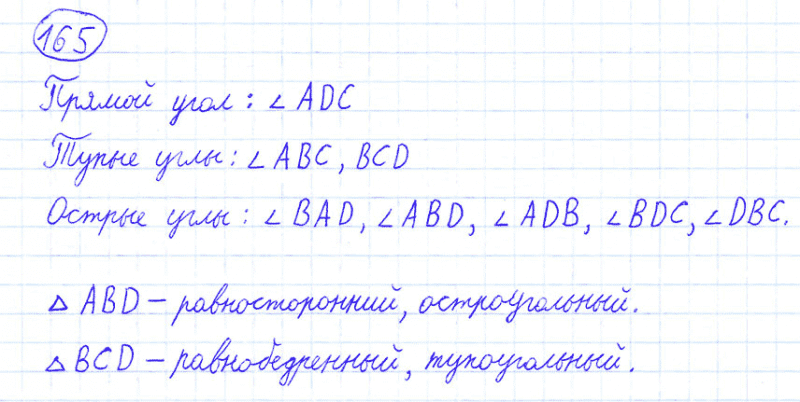 165
Прямой угол: ∠ ADC
Тупые углы: ∠ ABC, BCD
Острые углы: ∠ BAD, ∠ ABD, ∠ ADB, ∠ BDC, ∠ DBC.
△ ABD – равносторонний, остроугольный.
△ BCD – равнобедренный, тупоугольный.